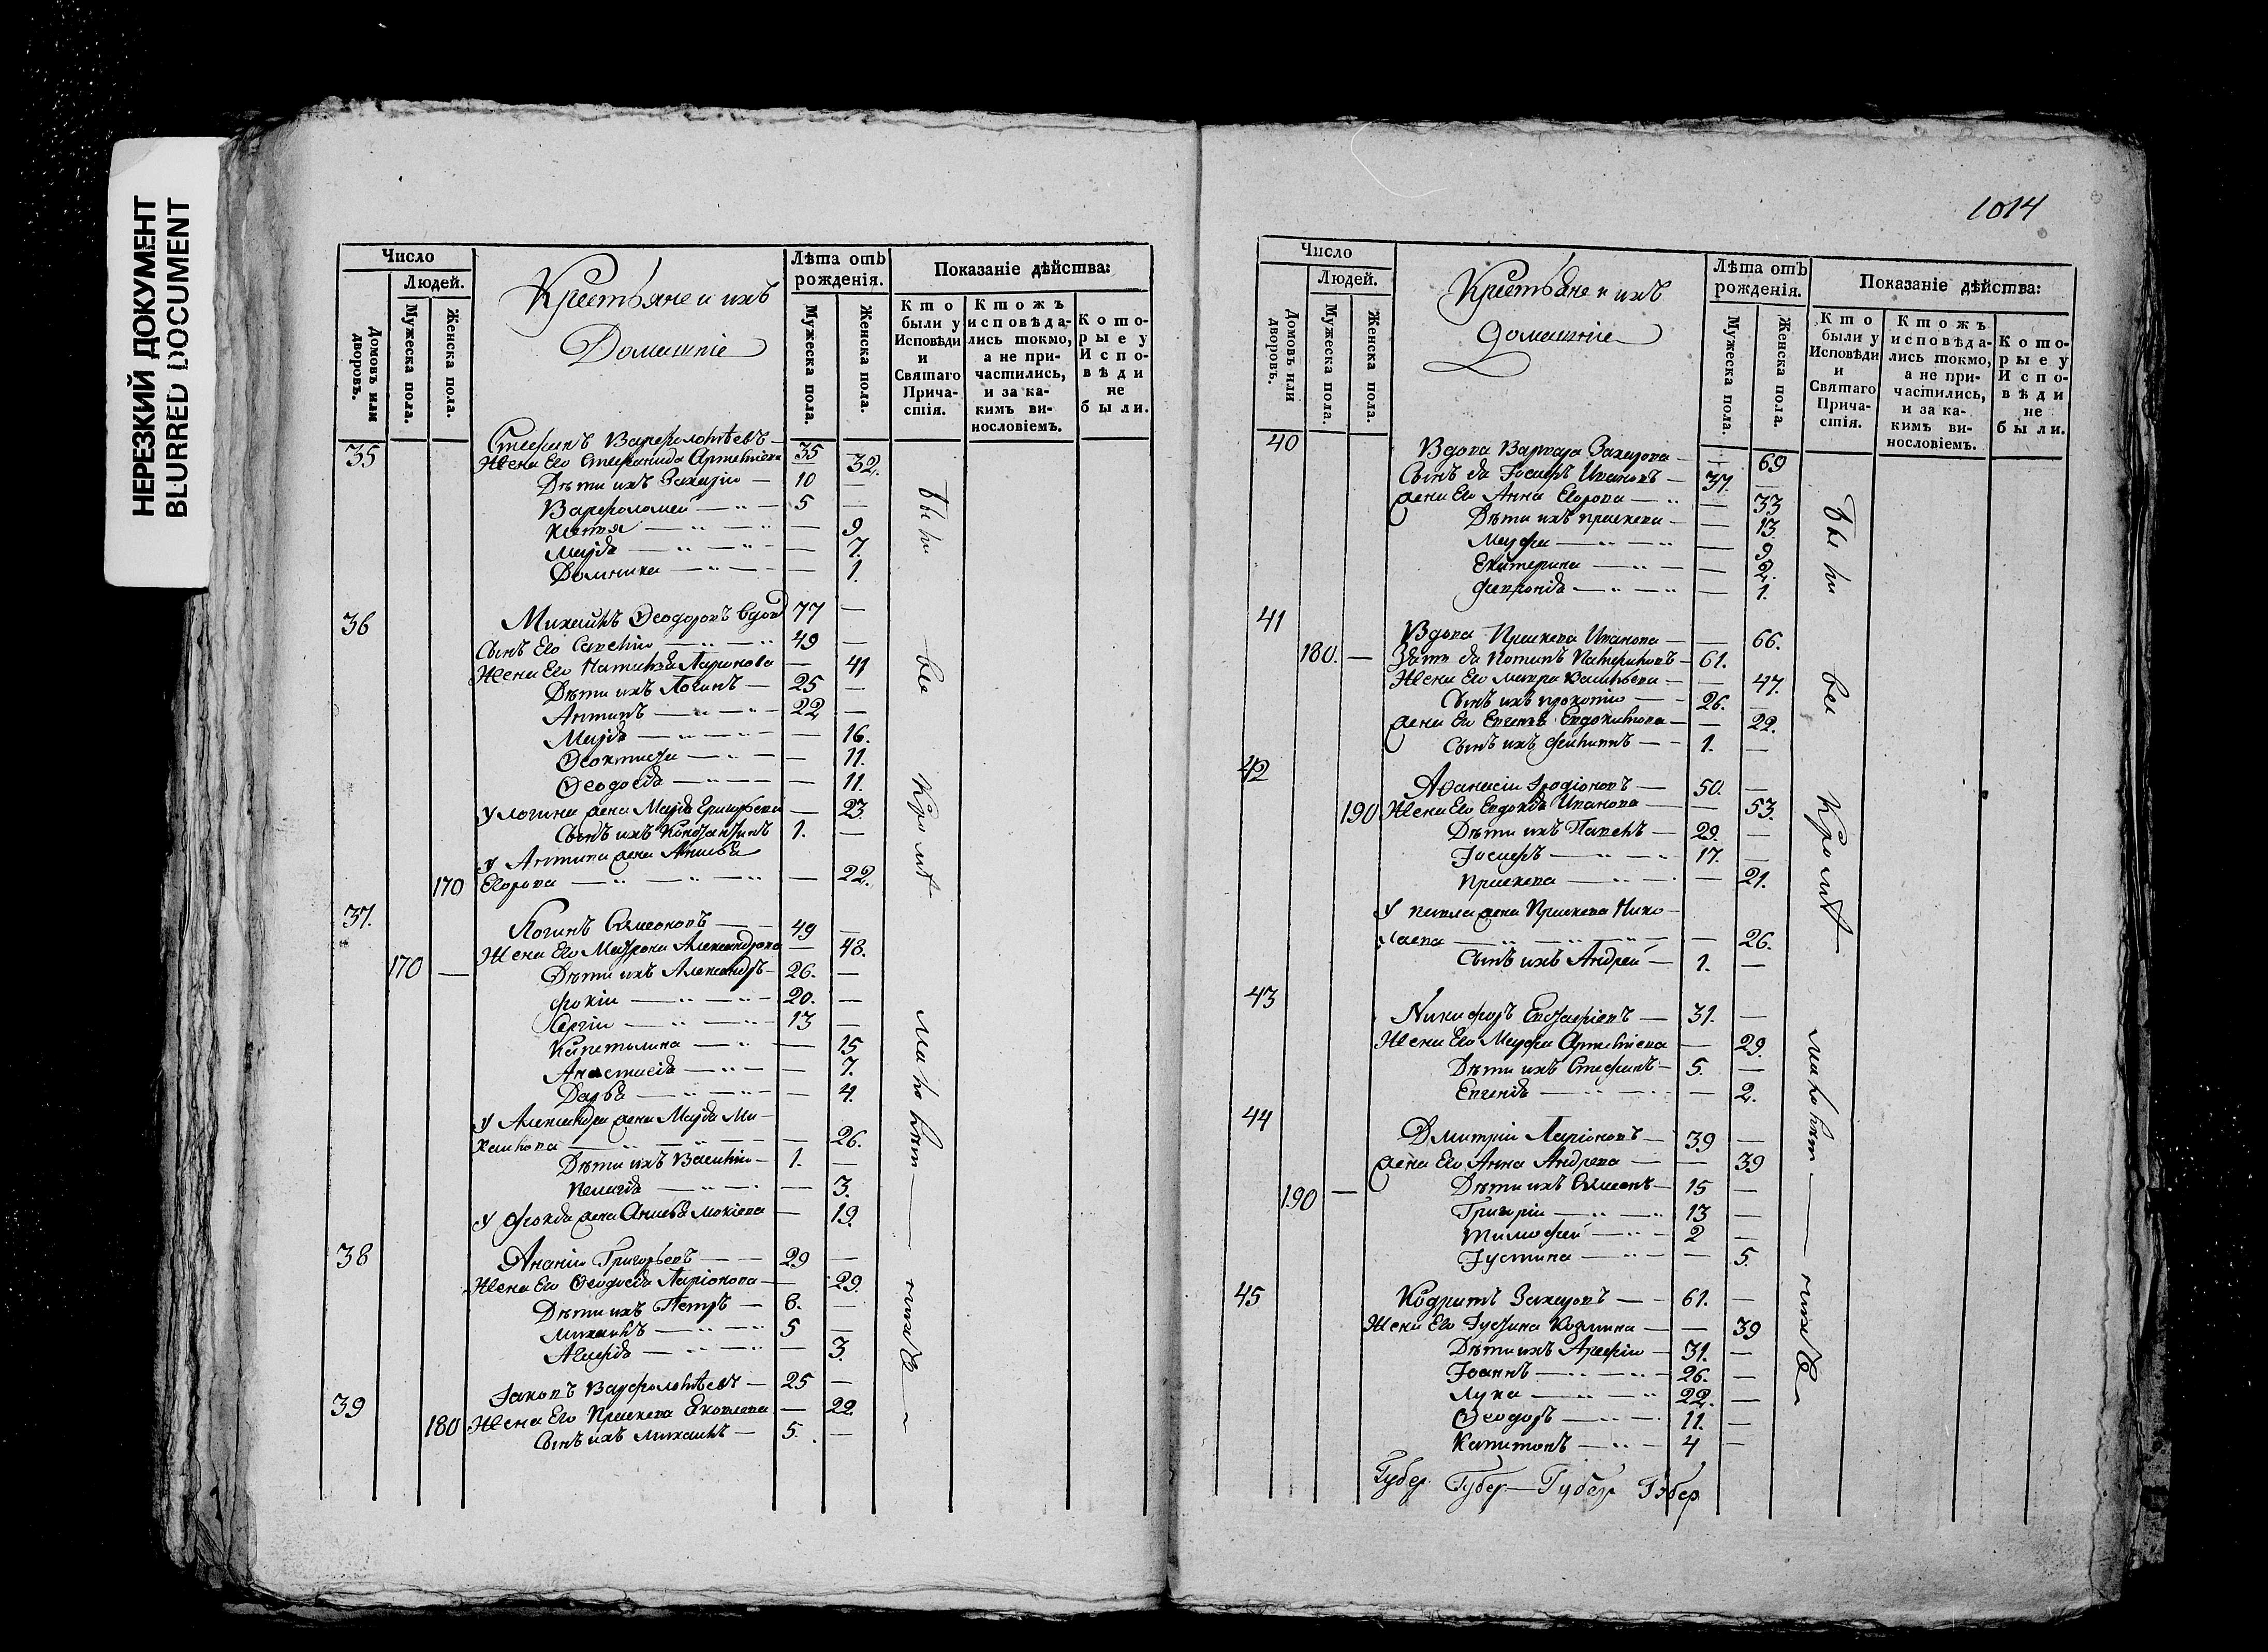 НЕРЕЗКИЙ ДОКУМЕНТ
BLURRED DOCUMENT
Число
Людей.
Домовъ или дворовъ.
Мужеска пола.
Женска пола.
Крестьяне и ихъ
Домашніе
Лѣта отъ рожденія.
Мужеска пола.
Женска пола.
Показаніе дѣйства:
Кто были у Исповѣди и Святаго Причастія.
Ктожъ исповѣдались токмо, а не причастились, и за какимъ винословіемъ.
Которые у Исповѣди не были.
35 Стефанъ Варфоломѣевъ — 35
Жена Его Стефанида Артемиева 32.
Дѣти ихъ Захарій — 10 —
Варфоломей — 5 —
— 9
Марія — 7.
Домника — 1.
36 Михаилъ Ѳеодоровъ вдов 77 —
Сынъ Его Савелій — 49 —
Жена Его Наталья Ларионова — 41
Дѣти ихъ Логинъ — 25 —
Антипъ — 22 —
Марія — 16.
Ѳеоктиста — 11.
Ѳеодосія — 11.
У логина жена Марія Григорьева — 23
Сынъ ихъ Константинъ 1. —
У Антипа жена Анисья
170 Егорова — 22.
37. Логинъ Симеоновъ — 49 —
Жена Его Матрона Александрова — 48.
170 — Дѣти ихъ Александръ — 26. —
Фокій — 20. —
Сергій — 13 —
Капетолина — 15
Анастасія — 7.
Дарья — 4.
У Александра жена Марія Ми-
хаилова — 26.
Дѣти ихъ Василій — 1. —
Пелагія — 3.
У Фокія жена Анисья Мокіева — 19.
38 Ананій Григорьевъ — 29 —
Жена Его Ѳеодосія Ларіонова — 29.
Дѣти ихъ Петръ — 8. —
Михаилъ — 5 —
— 3.
39 Іаковъ Варфоломѣевъ — 25 —
180 Жена Его Праскева Яковлева — 22
Сынъ ихъ Михаилъ — 5. —
были все Кромѣ малолѣт—нихъ
1014
Число
Людей.
Домовъ или дворовъ.
Мужеска пола.
Женска пола.
Крестьяне и ихъ
домашніе
Лѣта отъ рожденія.
Мужеска пола.
Женска пола.
Показаніе дѣйства:
Кто были у Исповѣди и Святаго Причастія.
Ктожъ исповѣдались токмо, а не причастились, и за какимъ винословіемъ.
Которые у Исповѣди не были.
40 Вдова Варвара Захарова — 69
Сынъ ея Іосифъ Ивановъ — 37. —
Жена Его Анна Егорова — 33
Дѣти ихъ праскева — 13.
Марфа — 9
Екатерина — 2.
Февронія — 1.
41 Вдова Праскева Иванова — 66.
180. — Зять ея Потапъ — 61.
Жена Его Мавра Васильева — 47.
Сынъ ихъ прокопій — 26. —
Жена Его Евгенія Евдокимова — 22.
Сынъ ихъ Филиппъ — 1. —
42 Аѳанасій Іродіоновъ — 50. —
190 Жена Его Евдокія Иванова — 53.
Дѣти ихъ Павелъ — 29. —
Іосифъ — 17. —
Праскева — 21.
У павла жена Праскева Нико-
лаева — 26.
Сынъ ихъ Андрей — 1. —
43 Никифоръ Евстафіевъ — 31. —
Жена Его Марфа Артемиева — 29.
Дѣти ихъ Стефанъ — 5. —
Евгенія — 2.
44 Дмитрій Ларіоновъ — 39 —
Жена Его Анна Андреева — 39
190 — Дѣти ихъ Симеонъ — 15 —
Григорій — 13 —
Тимофей — 2 —
Іустина — 5.
45 Кодратъ Захаровъ — 61. —
Жена Его Іустина Козмина — 39
Дѣти ихъ Арефій — 31. —
Іоаннъ — 26. —
Лука — 22. —
Ѳеодоръ — 11. —
Капитонъ — 4 —
были все Кромѣ малолѣт—нихъ
Губер Губер—Губер Губер